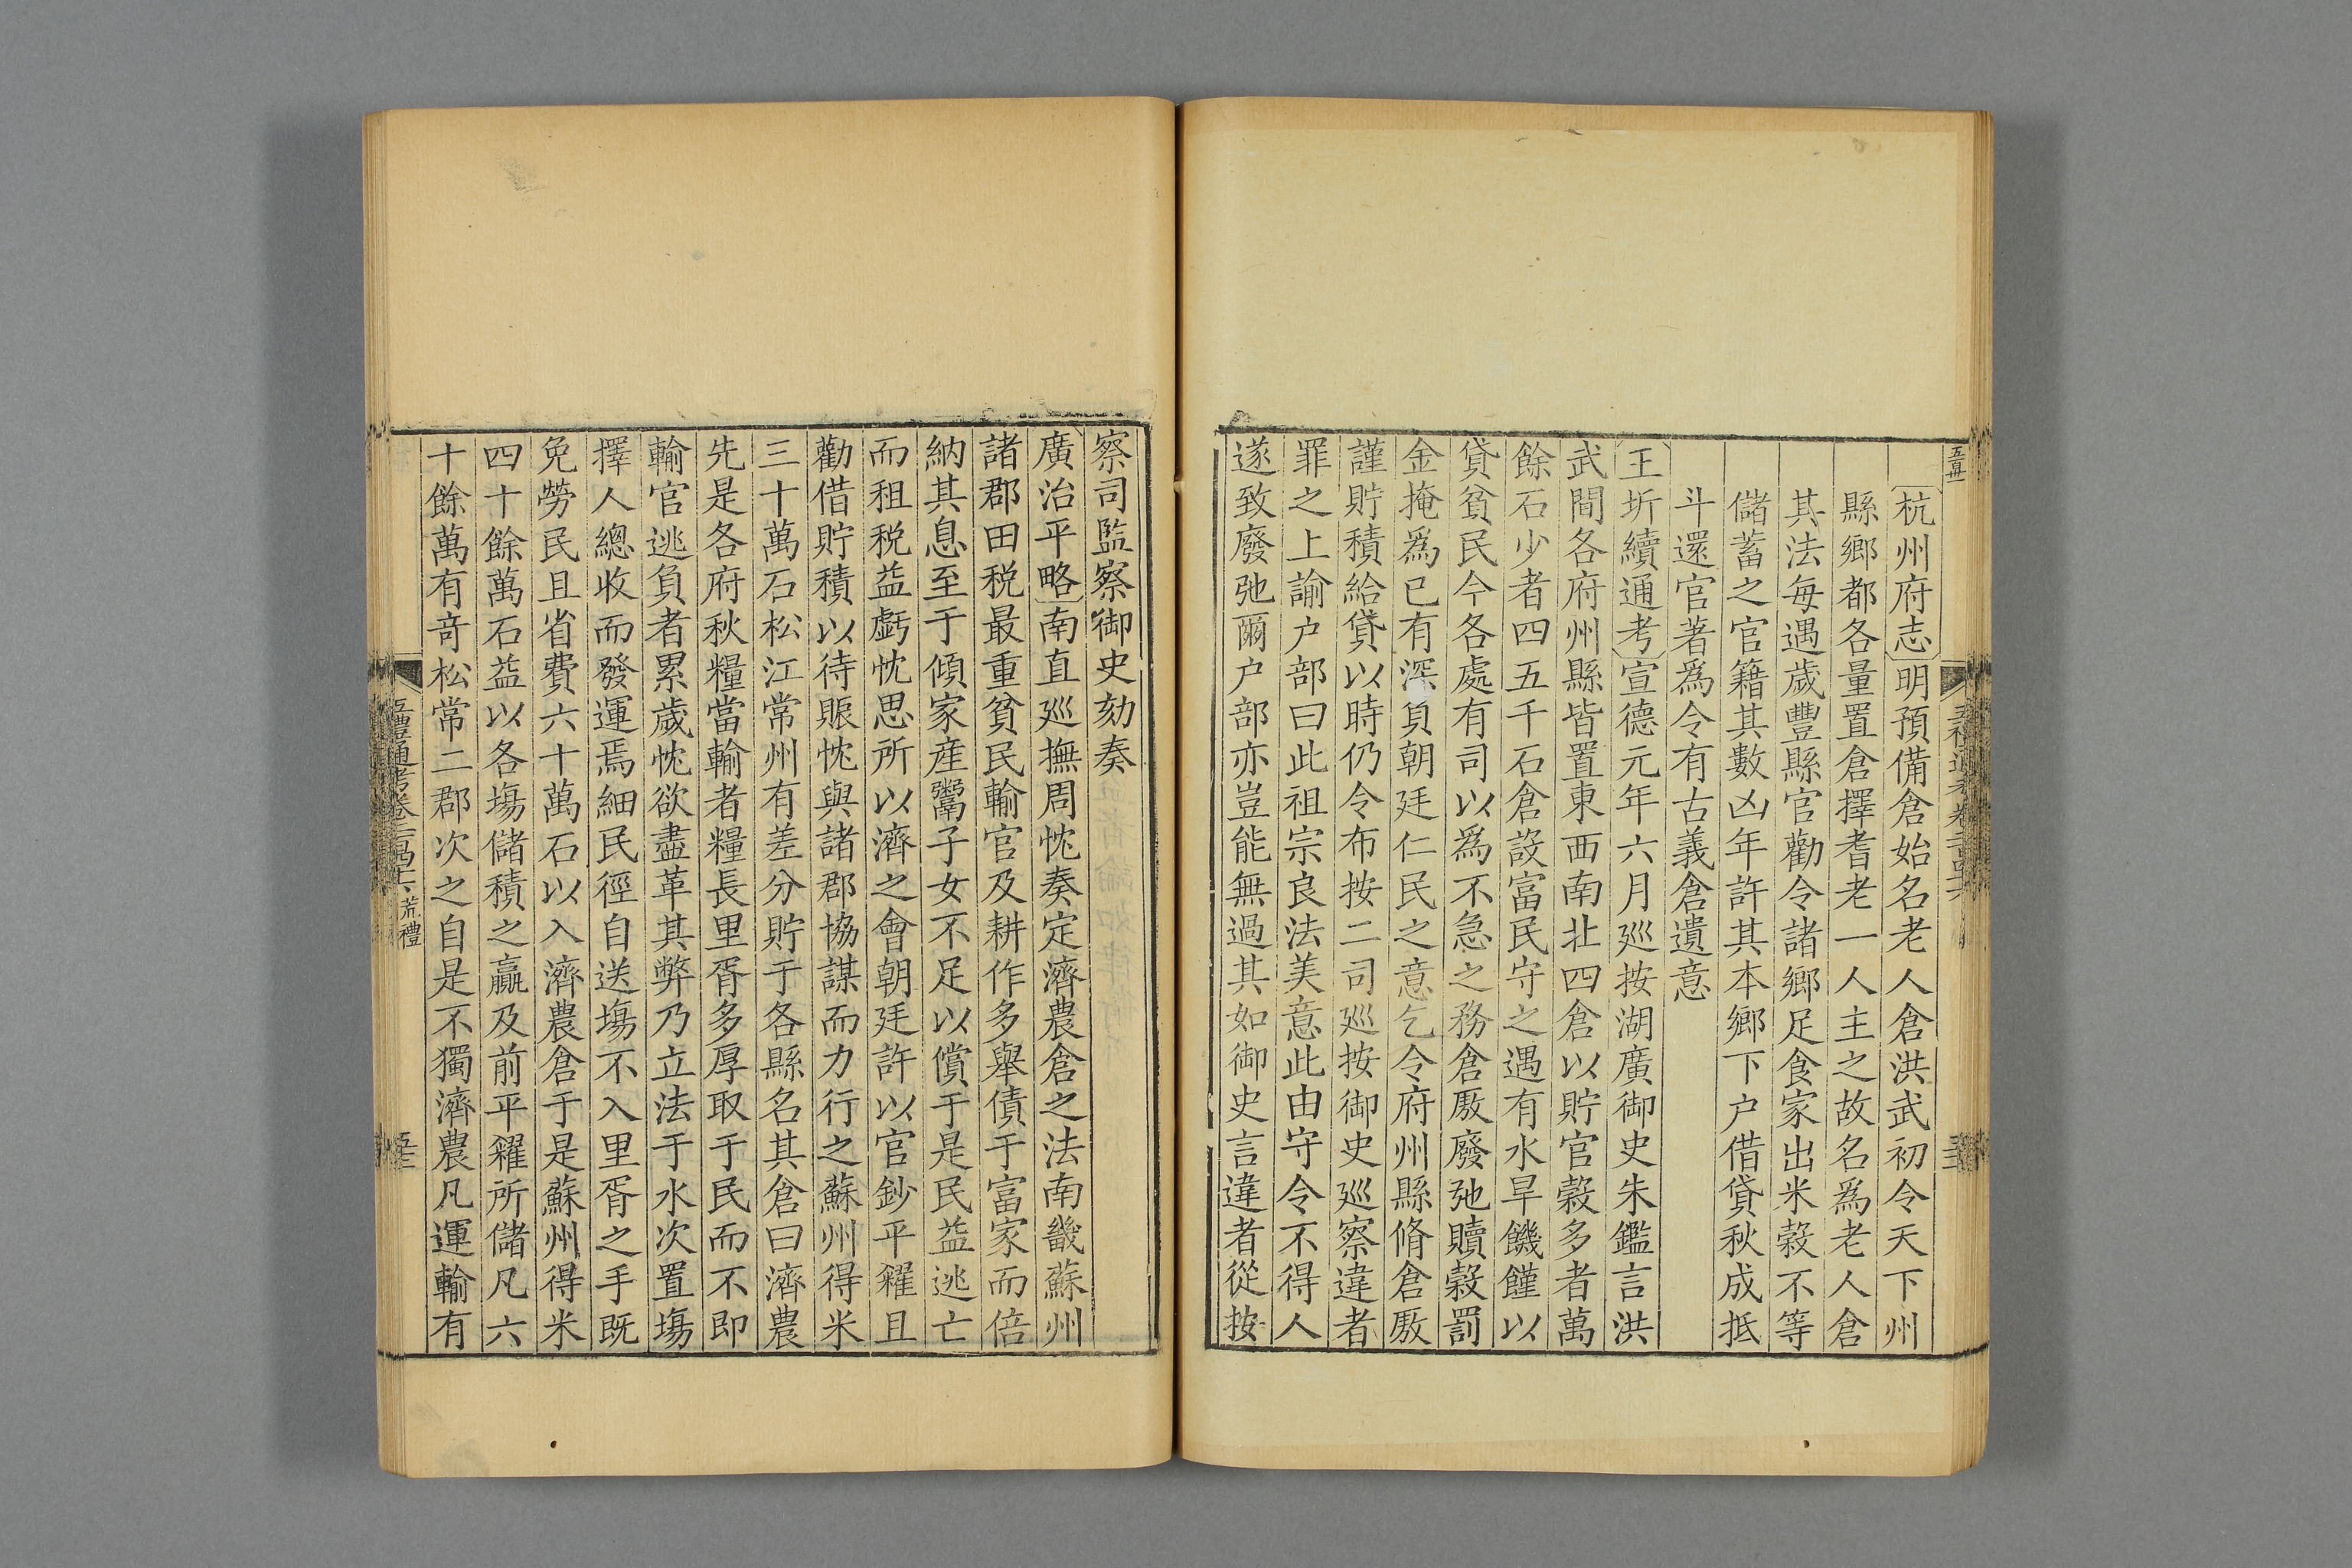 杭州府志明預備倉始名老人倉洪武初令天下州
縣鄉都各量置倉擇耆老一人主之故名爲老人倉
其法每遇歲豐縣官勸令諸鄉足食家出米穀不等
儲蓄之官籍其數凶年許其本鄉下户借貸秋成抵
斗還官著爲令有古義倉遺意
王圻續通考宣德元年六月廵按湖廣御史朱鑑言洪
武間各府州縣皆置東西南北四倉以貯官穀多者萬
餘石少者四五千石倉設富民守之遇有水旱饑饉以
貸貧民今各處有司以爲不急之務倉厫廢弛贖穀罰
金掩爲已有深負朝廷仁民之意乞令府州縣脩倉厫
謹貯積給貸以時仍令布按二司廵按御史廵察違者
罪之上諭户部曰此祖宗良法美意此由守令不得人
遂致廢弛爾户部亦豈能無過其如御史言違者從按
察司監察御史劾奏
廣治平略南直廵撫周忱奏定濟農倉之法南畿蘇州
諸郡田税最重貧民輸官及耕作多舉債于富家而倍
納其息至于傾家産鬻子女不足以償于是民益逃亡
而租税益虧忱思所以濟之會朝廷許以官鈔平糴且
勸借貯積以待賑忱與諸郡協謀而力行之蘇州得米
三十萬石松江常州有差分貯于各縣名其倉曰濟農
先是各府秋糧當輸者糧長里胥多厚取于民而不即
輸官逃負者累歲忱欲盡革其弊乃立法于水次置塲
擇人總收而發運焉細民徑自送塲不入里胥之手既
免勞民且省費六十萬石以入濟農倉于是蘇州得米
四十餘萬石益以各塲儲積之贏及前平糴所儲凡六
十餘萬有竒松常二郡次之自是不獨濟農凡運輸有
五禮通考卷二百四十六 荒禮